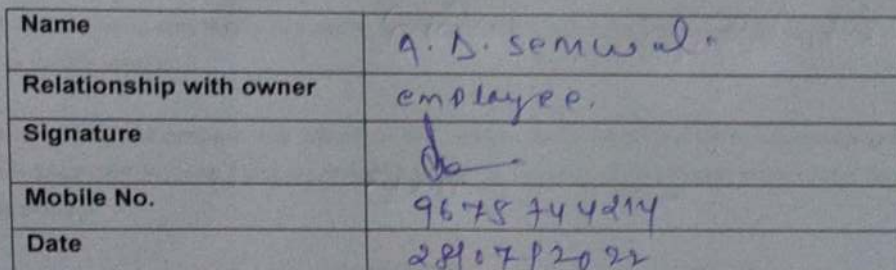 Name A. D. semwal.
Relationship with owner employee.
Signature
Mobile No. 9678744214
Date 28/07/2022